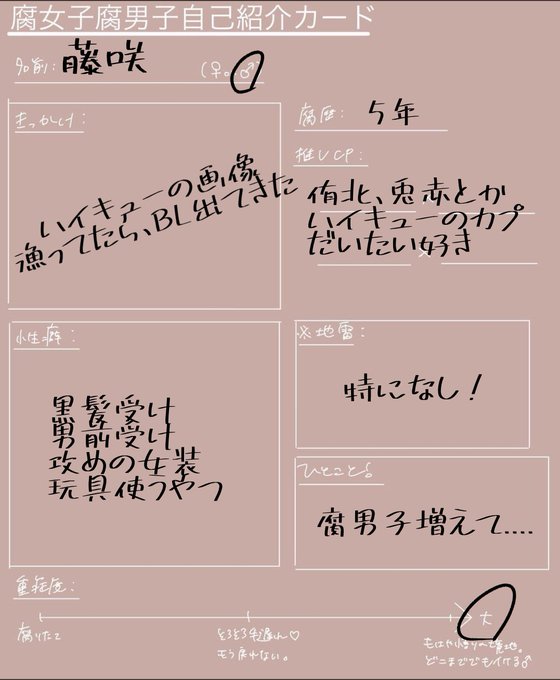 腐女子腐男子自己紹介カード
名前: 藤咲 (♀。♂)
きっかけ:
ハイキューの画像
漁ってたら、BL出てきた
腐歴: 5年
推しCP:
侑北、兎赤とか
ハイキューのカプ
だいたい好き
性癖:
黒髪受け
男前受け
攻めの女装
玩具使うやつ
※地雷:
特になし!
ひとこと♂
腐男子増えて....
重症度:
腐りたて
そろそろ手遅れ♡
もう戻れない。
大
もはや悟りの境地。
どこまででもイける♂